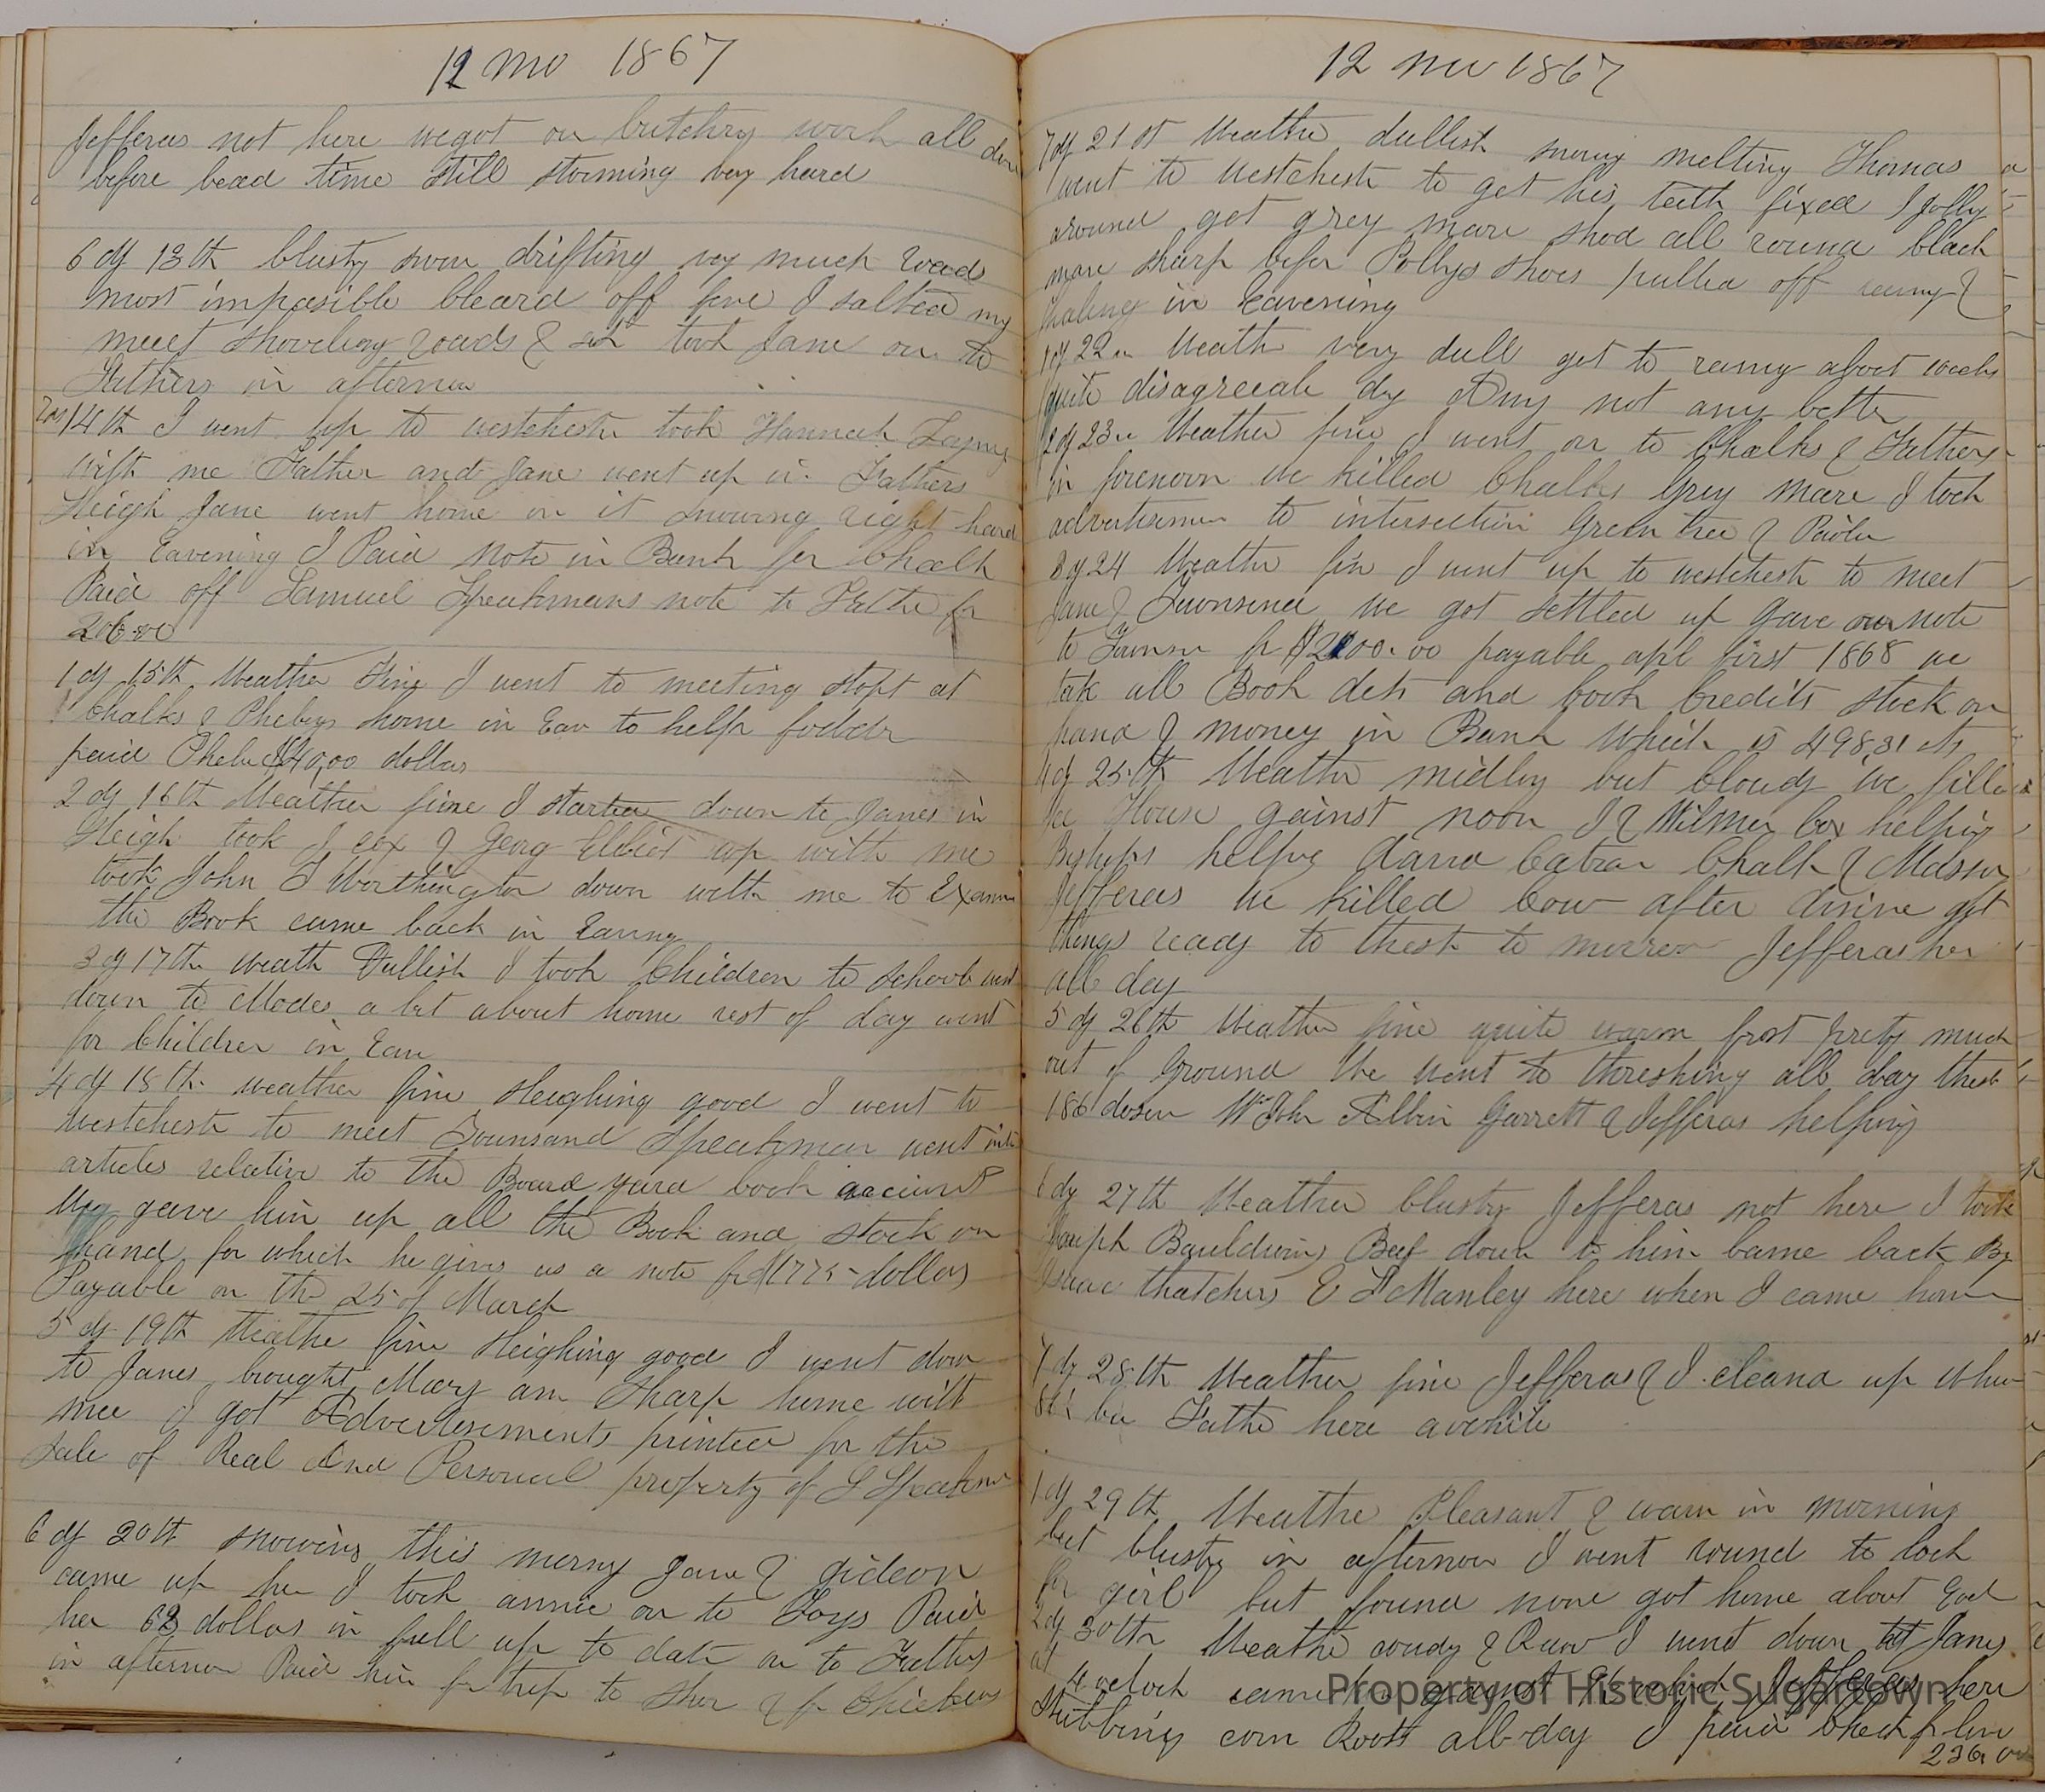 12 mo 1867
Jefferas not here we got on butchry work all don
before bead time still storming very hard
6 dy 13th blusty snow drifting vey much Roads
most imposible cleard off fine I salted my
meet shoveling roads & took Jane on to
Fathers in afternon
14th I went up to westchester took Hannah
with me Father and Jane went up in Fathers
Sleigh Jane went home on it snowing right hard
in Eavening I Paid note in Bank for Chalk
Paid off Samuel Speakmans note to Fathe for
206.00
1 dy 15th Weathe Fine I went to meeting stopt at
Chalks & Phebys home in Eav to help fodder
paid Phebe $40,00 dollas
2 dy 16th Weather fine I started down to Janes in
Sleigh took J cox & Georg Elliot up with me
took John I Worthington down with me to Examn
the Book came back in Eavning
3 dy 17th weath Dullish I took Children to school went
down to Modes a bit about home rest of day went
for Children in Eav
4 dy 18th weather fine sleighing good I went to
westchestr to meet Townsand Speakman went into
articles relative to the Board yard book account
We gave him up all the Book and stock on
hand for which he gives us a note for $1775- dollars
Payable on the 25 of March
5 dy 19th Weathe fine Sleighing good I went down
to Janes brought Mary ann Sharp home with
mee I got Advertisements printed for the
Sale of Real And Personal property of S Speakmn
6 dy 20th snowing this morny Jane & gideon
came up here I took annie on to Fays Paid
her 62 dollas in full up to date on to Fathers
in afternon Paid him for trip to Shor & for Chickens
12 mo 1867
7 dy 21st Weathe dullish snowy melting Thomas
went to Westchestr to get his teeth fixed I Jolly
around got grey mare shod all round black
mare sharp befor Pollys shoes pulled off rainy &
haleing in Eavening
1 dy 22n Weath very dull got to rainy about
quite disagreeale dy Amy not any bettr
2 dy 23n Weather fine I went on to Chalks & Fathers
in forenoon we killed Chalks Grey mare I took
advertismen to intersection Green tree & Paoli
3 dy 24 Weathe fin I went up to westchestr to meet
Jane & Townsend we got settled up gave our note
to Townsn for $2100.00 payable apl first 1868 we
tak all Book dets and book Credits stock on
hand & money in Bank which is 498,31 cts
4 dy 25th Weathe midling but Cloudy we filled
Ice House gainst noon I & Wilmer Cox helping
Bishops helping Chalk & Mason
Jefferas we killed Cow after dinne got
things ready to thresh to morrow Jefferas her
all day
5 dy 26th Weathe fine quite warm frost prety much
out of Ground We went to threshing all day thresh
186 dosen Wm John Albin Garrett & Jefferas helping
6 dy 27th Weather blusty Jefferas not here I took
Joseph Bauldwins Beef down to him Came back By
Isaac thatchers E Manley here when I came home
7 dy 28th Weather fine Jefferas & I cleand up Whea
Fathe here awhile
1 dy 29th Weathe Pleasant & warm in morning
but blusty in afternon I went round to look
for girl but found none got home about
2 dy 30th Weathe & Raw I went down to Janes
at 4 oclock came Jefferas here
Stubbing corn Roots all day I paid Check for
236
Property of Historic Sugartown